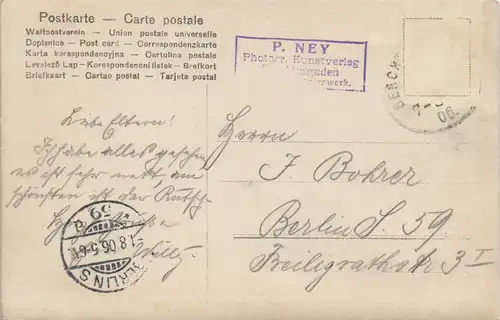 Postkarte — Carte postale
Weltpostverein - Union postale universelle
Dopisnice - Post card - Correspondenzkarte
Karta korespondencyjna - Cartolina postale
Levelező Lap - Korespondenční lístek - Brefkort
Briefkaart - Cartao postal - Tarjeta postal
P. NEY
Photogr. Kunstverlag
BERCH
06.
Liebe Eltern!
Ich habe alles gesehen
es ist sehr nett, am
schönsten ist der Rutsch
Willy.
BERLIN S
1.8.06.5-6
59
Herrn
J Bohrer
Berlin S. 59
Freiligrathstr 3 I